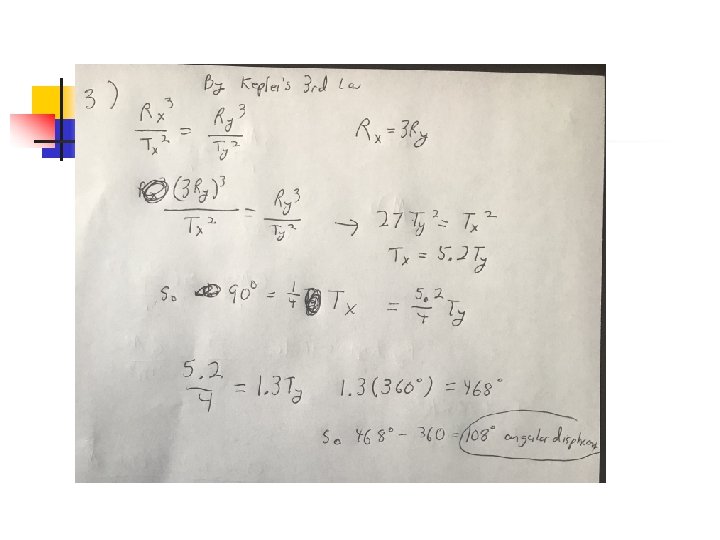 3) By Kepler's 3rd La
Rx³/Tx² = Ry³/Ty² Rx = 3Ry
(3Ry)³/Tx² = Ry³/Ty² → 27 Ty² = Tx²
Tx = 5.2 Ty
So 90° = 1/4 Tx = 5.2/4 Ty
5.2/4 = 1.3Ty 1.3(360°) = 468°
So 468° - 360 = 108° angular